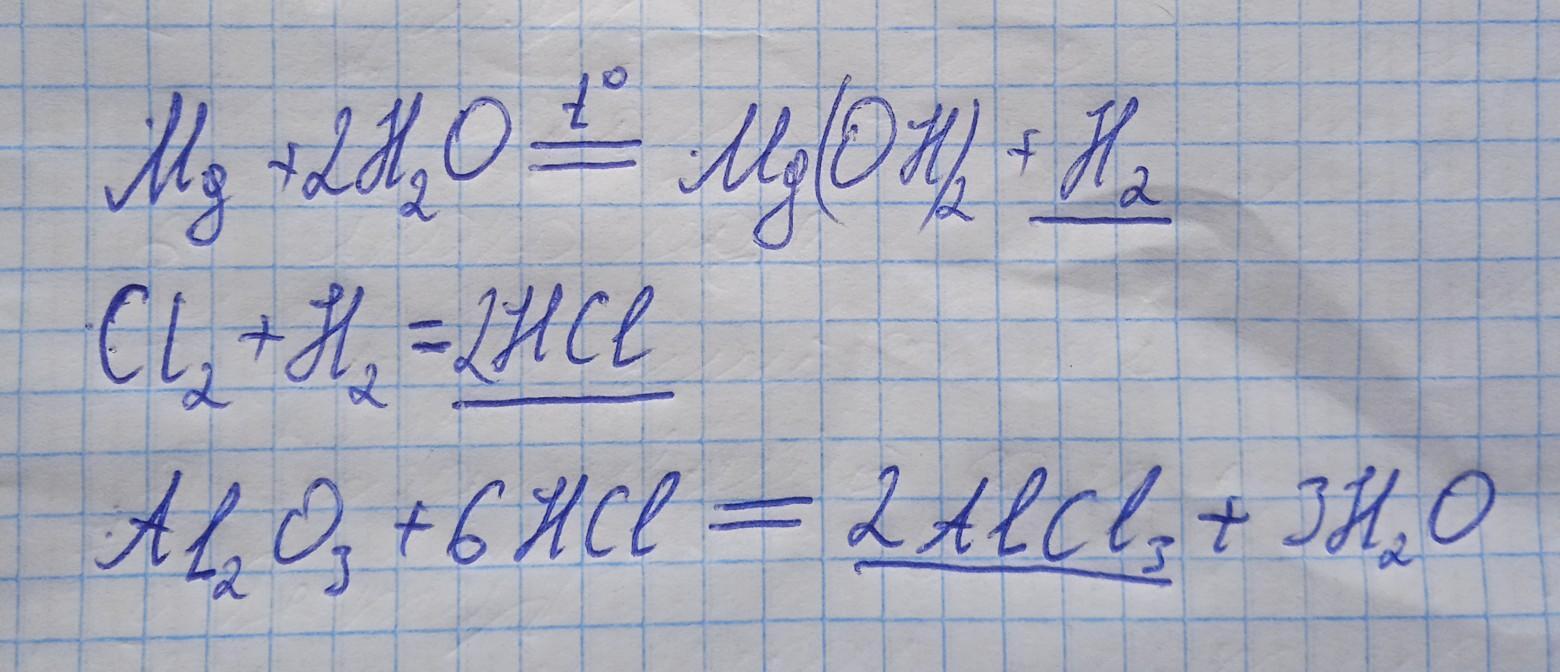 Mg + 2H₂O =t°= Mg(OH)₂ + H₂
Cl₂ + H₂ = 2HCl
Al₂O₃ + 6HCl = 2AlCl₃ + 3H₂O